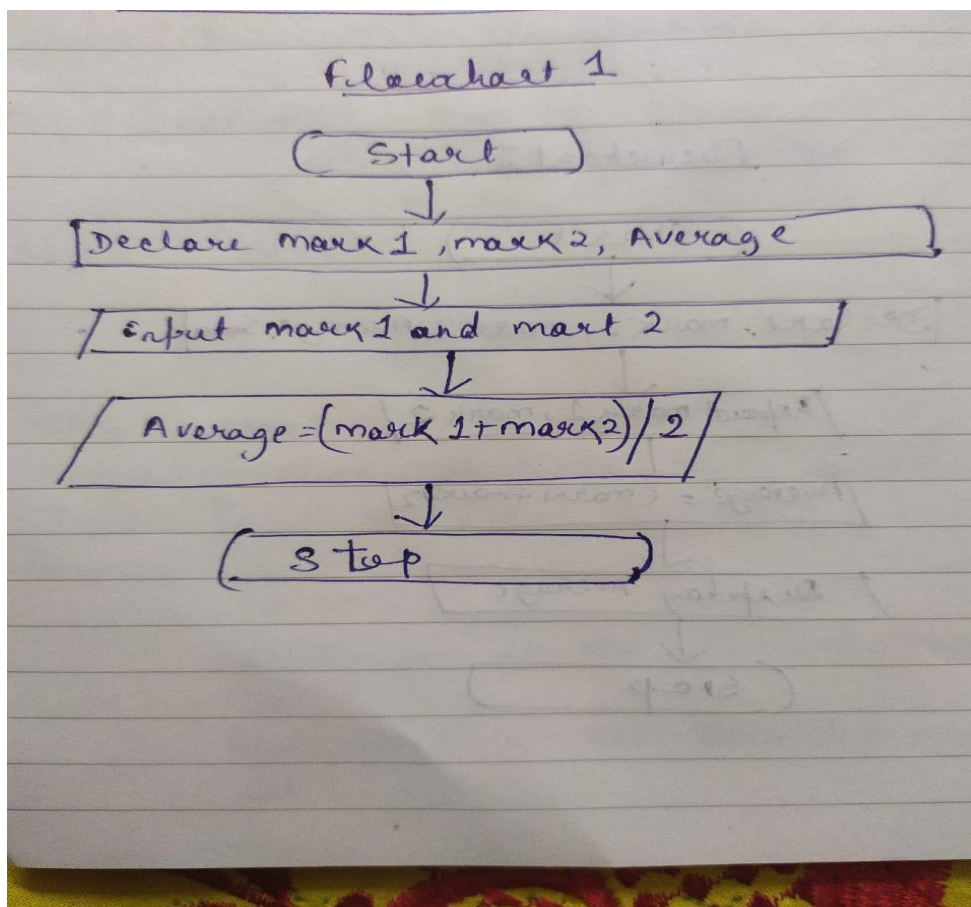 Flowchart 1
Start
Declare mark 1, mark 2, Average
input mark 1 and mart 2
Average = (mark 1 + mark 2) / 2
Stop